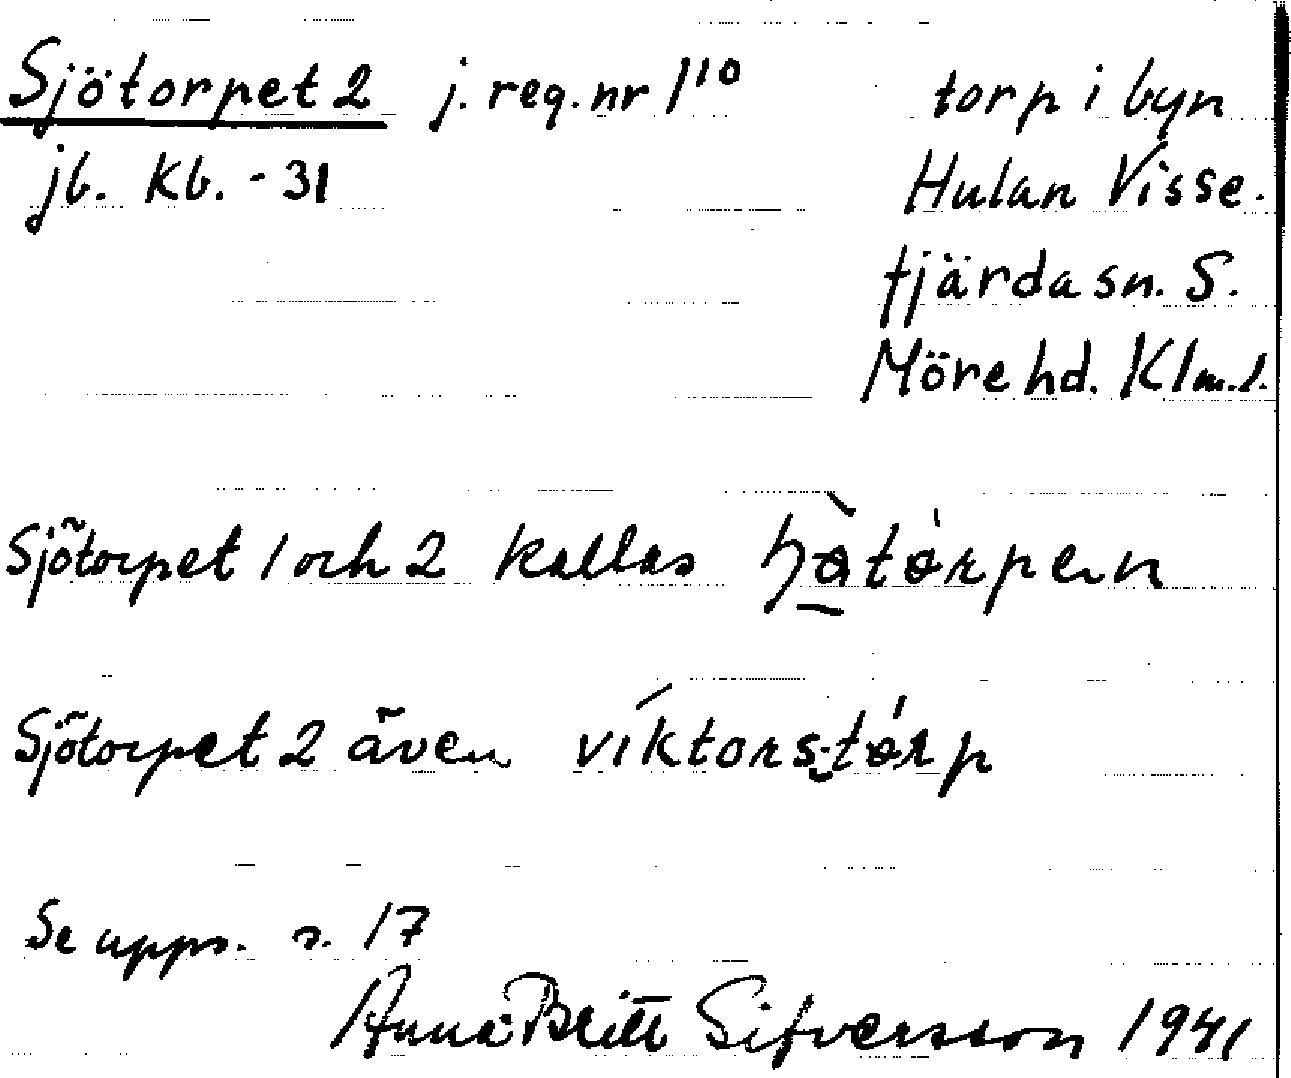 Sjötorpet 2 j. reg. nr 1¹⁰ torp i byn
jb. Kb. - 31 Hulan Visse-
fjärda sn. S.
Möre hd. Klm. l.
Sjötorpet 1 och 2 kallas
Sjötorpet 2 även viktorstorp
Se upps. s. 17
Anna-Britt Sifversson 1941